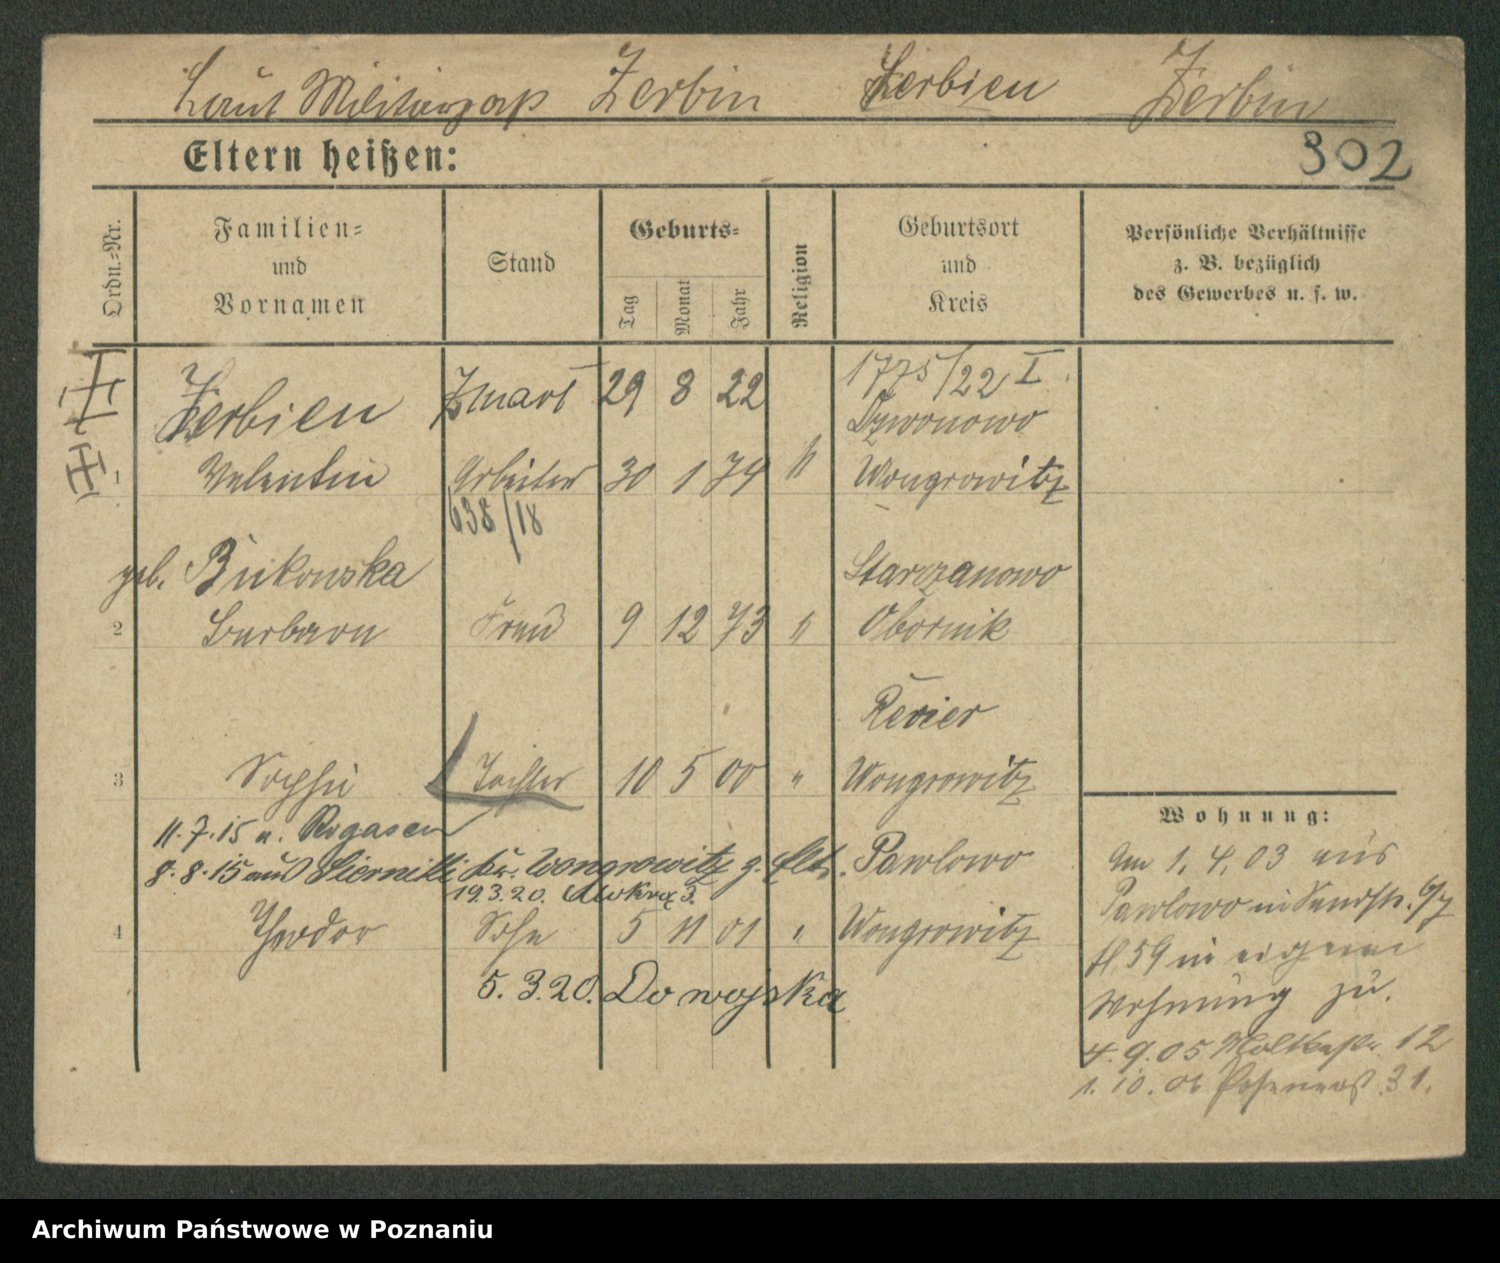 Laut Militärpaß Zerbin Zerbien Zerbin
Eltern heißen:
302
Ordn.-Nr.
Familien-
und
Vornamen
Stand
Geburts-
Tag
Monat
Jahr
Religion
Geburtsort
und
Kreis
Persönliche Verhältnisse
z. B. bezüglich
des Gewerbes u. s. w.
Zerbien Zmarł 29 8 22 1775/22 I
Dzwonowo
1 Valentin Arbeiter 30 1 74 k Wongrowitz
638/18
geb. Bukowska Starczanowo
2 Barbara Frau 9 12 73 k Obornik
Revier
3 Sophie Tochter 10 5 00 " Wongrowitz
11.7.15 n. Rogasen
8.8.15 aus Siernicki Kr. Wongrowitz z. Elt. Pawlowo
19.3.20.
4 Theodor Sohn 5 11 01 " Wongrowitz
5.3.20. Do wojska
Wohnung:
Am 1.4.03 aus
Pawlowo in Sandstr. 6/7
fl. 59 in eigene
Wohnung zu.
4.9.05 Moltkestr. 12
1.10.06 Posenerst. 31.
Archiwum Państwowe w Poznaniu